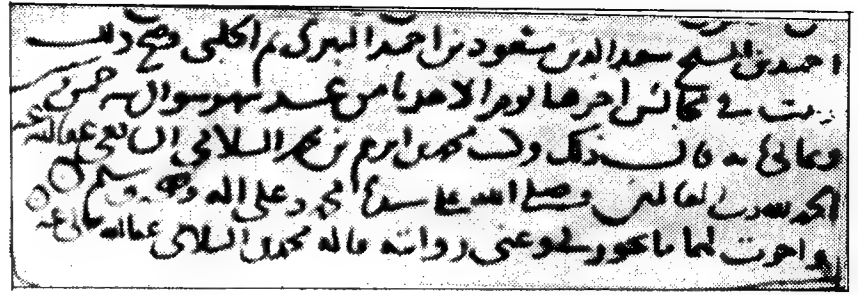 احمد بن الشيخ سعد الدين مسعود بن احمد ثم الحلبي وصح ذلك
في مجالس اخرها يوم الاحد ثامن عشر شهر شوال سنة خمس
وثماني مائة قال ذلك وكتب محمد بن ابرهيم بن محمد السلامي الشافعي عفا الله عنه
الحمد لله رب العالمين وصلى الله على سيدنا محمد وعلى اله وصحبه وسلم
واجزت لهما ما يجوز لي وعني روايته قاله محمد السلامي عفا الله تعالى عنه